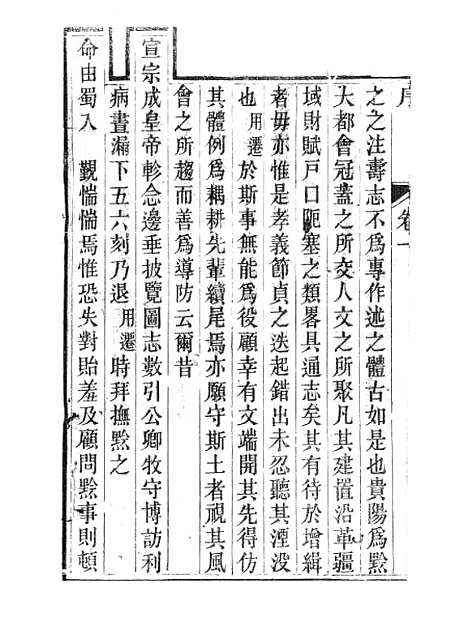 序 卷一
之之注壽志不爲專作述之體古如是也貴陽爲黔
大都會冠蓋之所交人文之所聚凡其建置沿革疆
域財賦戸口阨塞之類畧具通志矣其有待於增緝
者毋亦惟是孝義節貞之迭起錯出未忍聽其湮没
也用遷於斯事無能爲役顧幸有文端開其先得仿
其體例爲耦耕先輩續尾焉亦願守斯土者視其風
會之所趨而善爲導防云爾昔
宣宗成皇帝軫念邊垂披覽圖志數引公卿牧守博訪利
病晝漏下五六刻乃退用遷時拜撫黔之
命由蜀入 覲惴惴焉惟恐失對貽羞及顧問黔事則頓